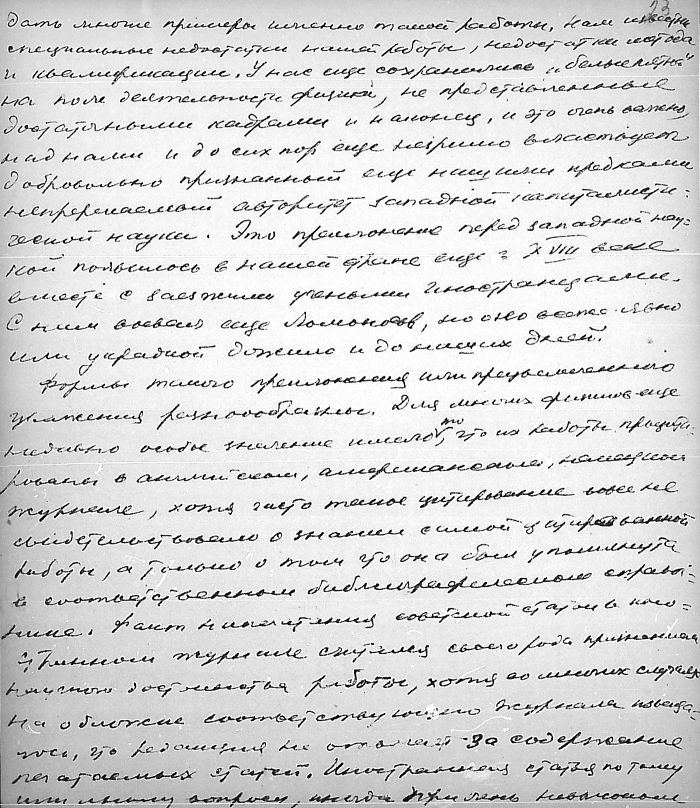 23
дать многие примеры именно такой работы. Нам известны
специальные недостатки нашей работы, недостатки метода
и квалификации. У нас еще сохранились „белые пятна"
на поле деятельности физики, не представленные
достаточными кадрами и наконец, и это очень важно,
над нами и до сих пор еще незримо властвует
добровольно признанный еще нашими предками
непререкаемый авторитет западной капиталисти-
ческой науки. Это преклонение перед западной нау-
кой появилось в нашей стране еще в XVIII веке
вместе с заезжими учеными иностранцами.
С ним воевал еще Ломоносов, но оно все же явно
или украдкой дожило и до наших дней.
Формы такого преклонения или преувеличенного
уважения разнообразны. Для многих физиков еще
недавно особое значение имело то, что их работы процити-
рованы в английском, американском, немецком
журнале, хотя часто такое цитирование вовсе не
свидетельствовало о знании самой цитированной
работы, а только о том что она была упомянута
в соответственном библиографическом справоч-
нике. Факт напечатания советской статьи в ино-
странном журнале считался своего рода признанием
научного достоинства работы, хотя во многих случаях
на обложке соответствующего журнала
что редакция не отвечает за содержание
печатаемых статей. Иностранная статья по тому
или иному вопросу, иногда при очень невысоком